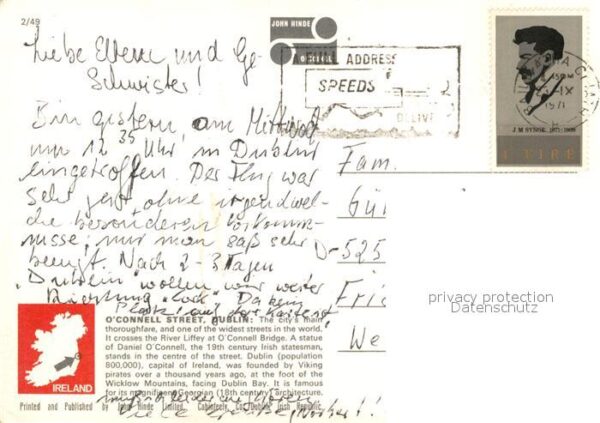 2/49
JOHN HINDE
ORIGINAL
FULL ADDRESS
SPEEDS
DELIVERY
IX
1971
J M SYNGE. 1871-1909
4 EIRE
Liebe Eltern und Ge-
schwister!
Bin gestern, am Mittwoch
um 12 35 Uhr in Dublin
eingetroffen. Der Flug war
sehr gut ohne irgendwel-
che besonderen Vorkomm-
nisse; nur man saß sehr
beengt. Nach 2-3 Tagen
"Dublin" wollen wir weiter
Richtung "Cork". Da kein
Platz auf der Karte ist,
muß ich leider aufhören
Viele Grüße, Norbert!
Fam.
Gün
D-525
Frie
We
privacy protection
Datenschutz
IRELAND
O'CONNELL STREET, DUBLIN: The city's main
thoroughfare, and one of the widest streets in the world.
It crosses the River Liffey at O'Connell Bridge. A statue
of Daniel O'Connell, the 19th century Irish statesman,
stands in the centre of the street. Dublin (population
800,000), capital of Ireland, was founded by Viking
pirates over a thousand years ago, at the foot of the
Wicklow Mountains, facing Dublin Bay. It is famous
for its magnificent Georgian (18th century) architecture.
Printed and Published by John Hinde Limited, Cabinteely, Co. Dublin, Irish Republic.